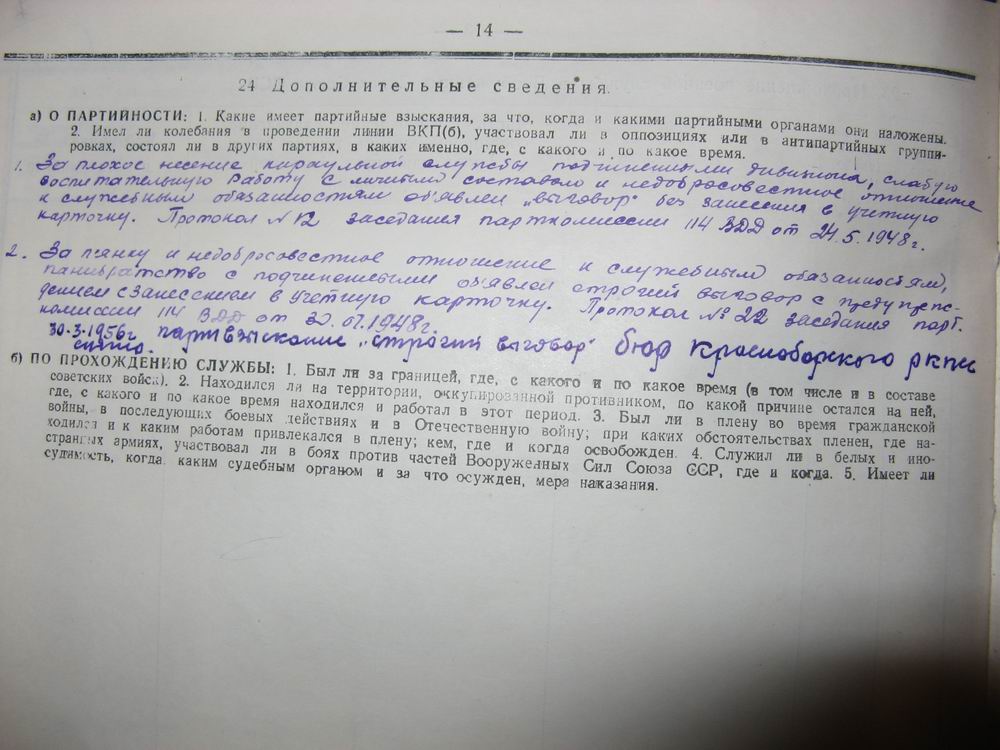 — 14 —
24 Дополнительные сведения.
а) О ПАРТИЙНОСТИ: 1. Какие имеет партийные взыскания, за что, когда и какими партийными органами они наложены.
2. Имел ли колебания в проведении линии ВКП(б), участвовал ли в оппозициях или в антипартийных группи-
ровках, состоял ли в других партиях, в каких именно, где, с какого и по какое время.
1. За плохое несение караульной службы подчиненными дивизиона, слабую
воспитательную работу с личным составом и недобросовестное отношение
к служебным обязанностям объявлен „выговор" без занесения в учетную
карточку. Протокол №12 заседания парткомиссии 114 ВДД от 24.5.1948г.
2. За пьянку и недобросовестное отношение к служебным обязанностям,
панибратство с подчиненными объявлен строгий выговор с предупреж-
дением с занесением в учетную карточку. Протокол № 22 заседания парт.
комиссии 114 ВДД от 30.07.1948г.
30-3-1956г партвзыскание „строгий выговор" бюро Красноборского РКПСС
снято.
б) ПО ПРОХОЖДЕНИЮ СЛУЖБЫ: 1. Был ли за границей, где, с какого и по какое время (в том числе и в составе
советских войск). 2. Находился ли на территории, оккупированной противником, по какой причине остался на ней,
где, с какого и по какое время находился и работал в этот период. 3. Был ли в плену во время гражданской
войны, в последующих боевых действиях и в Отечественную войну; при каких обстоятельствах пленен, где на-
ходился и к каким работам привлекался в плену; кем, где и когда освобожден. 4. Служил ли в белых и ино-
странных армиях, участвовал ли в боях против частей Вооруженных Сил Союза ССР, где и когда. 5. Имеет ли
судимость, когда, каким судебным органом и за что осужден, мера наказания.